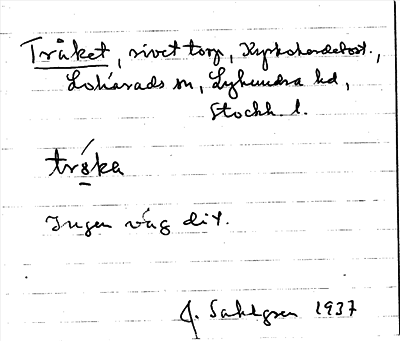 Tråket, rivet torp, Kyrkoherdebost.,
Lohärads sn, Lyhundra hd,
Stockh. l.
tråka
Ingen väg dit.
J. Sahlgren 1937